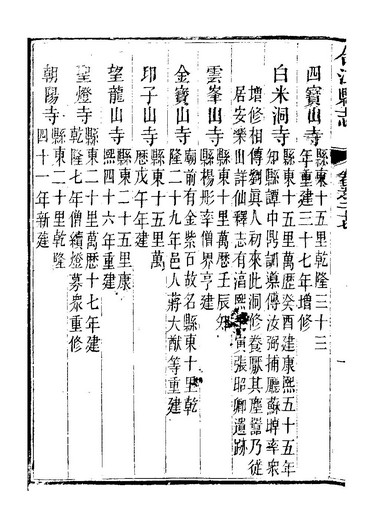 合江縣志
四寶山寺
縣東十五里乾隆三十三
年重建三十七年增修
白米洞寺
縣東十五里萬歷癸酉建康熙五十五年
知縣譚中 訓導傅汝弼捕廳蘇 率眾
增修相傳劉真人初來此洞修養厭其塵囂乃從
居安樂山詳仙釋志有 熙 寅張昭卿遺跡
雲峯山寺
縣東十五里萬歷壬辰知
縣楊彤率僧界亨建
金寶山寺
廟前有金紫石故名縣東十里乾
隆二十九年邑人蔣大猷等重建
印子山寺
縣東十五里萬
歷戊午年建
望龍山寺
縣東二十五里康
熙四十六年重建
皇燈寺
縣東二十里萬歷十七年建
乾隆七年僧續燈募衆重修
朝陽寺
縣東二十里乾隆
四十一年新建